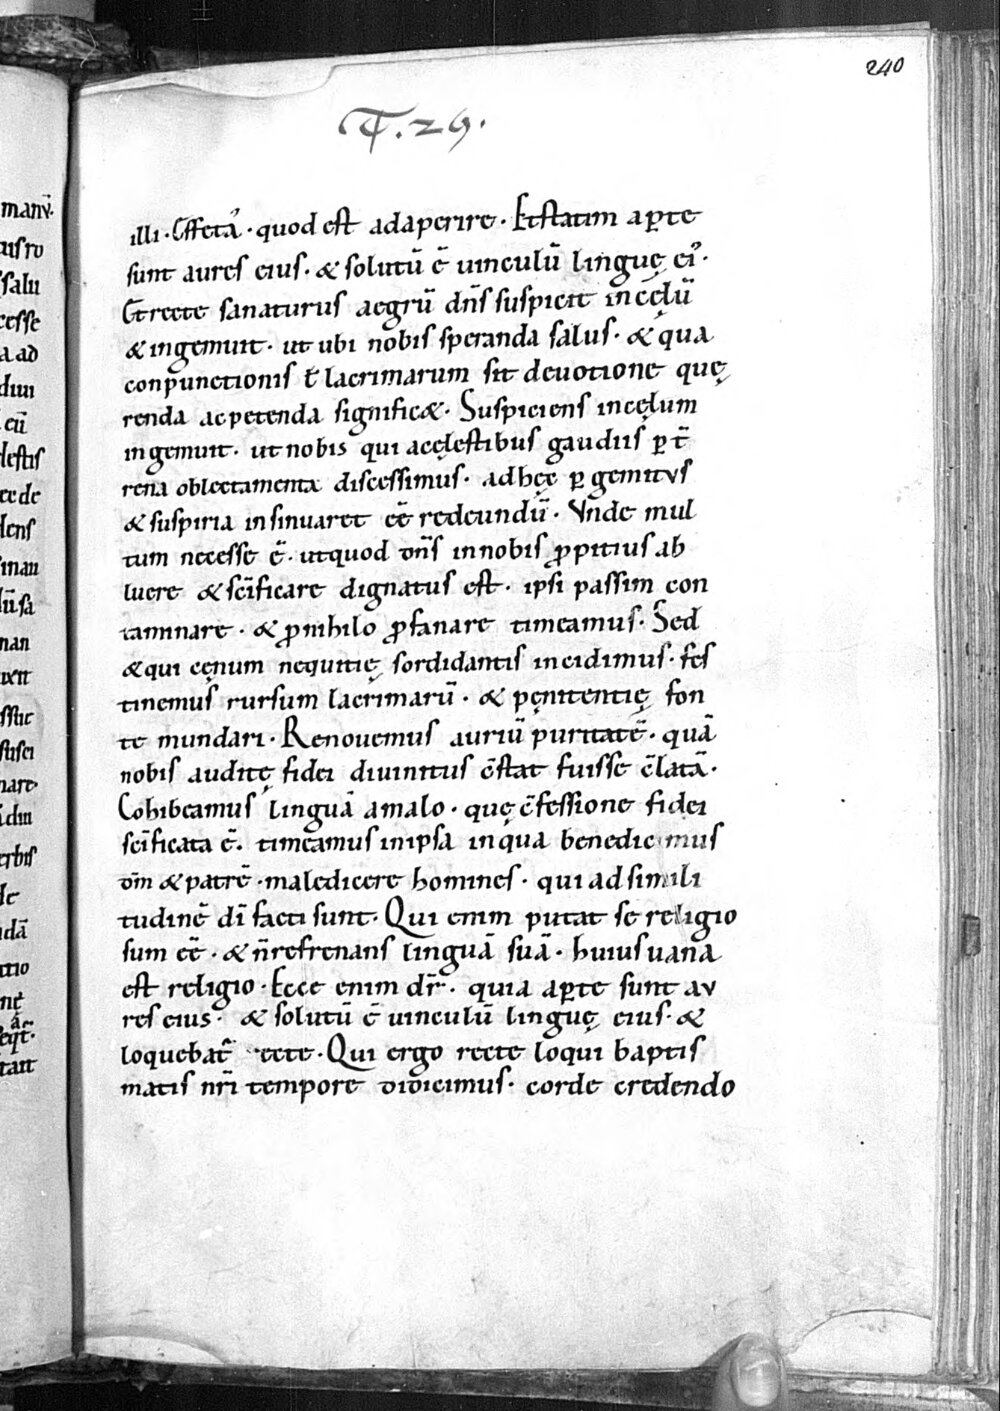 240
T. 29.
manū.
illi · Effeta᷒ · quod est adaperire · Et statim ap̱te
sunt aures eius · & solutū ē uinculū linguę ei᷒ ·
Et recte sanaturus aegrū dn̄s suspicit in cęlū
& ingemuit · ut ubi nobis speranda salus · & qua
conpunctionis ł lacrimarum sit deuotione quę
renda ac petenda signific& · Suspiciens in cęlum
ingemuit · ut nobis qui a cęlestibus gaudiis p̱ t̄
rena oblectamenta discessimus · ad hęc p̱ gemitus
& suspiria insinuaret eē redeundū · Vnde mul
tum necesse ē · ut quod dn̄s in nobis ꝓpitius ab
luere & sc̄ificare dignatus est · ipsi passim con
taminare · & ꝓ nihilo ꝓfanare timeamus · Sed
& qui cęnum nequitię sordidantis incidimus · fes
tinemus rursum lacrimarū · & pęnitentię fon
te mundari · Renouemus auriū puritatē · quā
nobis auditę fidei diuinitus c̄stat fuisse c̄latā ·
Cohibeamus linguā a malo · quę c̄fessione fidei
sc̄ificata ē · timeamus in ipsa in qua benedicimus
dm̄ & patrē · maledicere homines · qui ad simili
tudinē di̅ facti sunt · Qui enim putat se religio
sum eē · & n̄ refrenans linguā suā · huius uana
est religio · Ecce enim dr̄ · quia ap̱te sunt au
res eius · & solutū ē uinculū linguę eius · &
loquebat᷑ recte · Qui ergo recte loqui baptis
matis nr̄i tempore didicimus · corde credendo